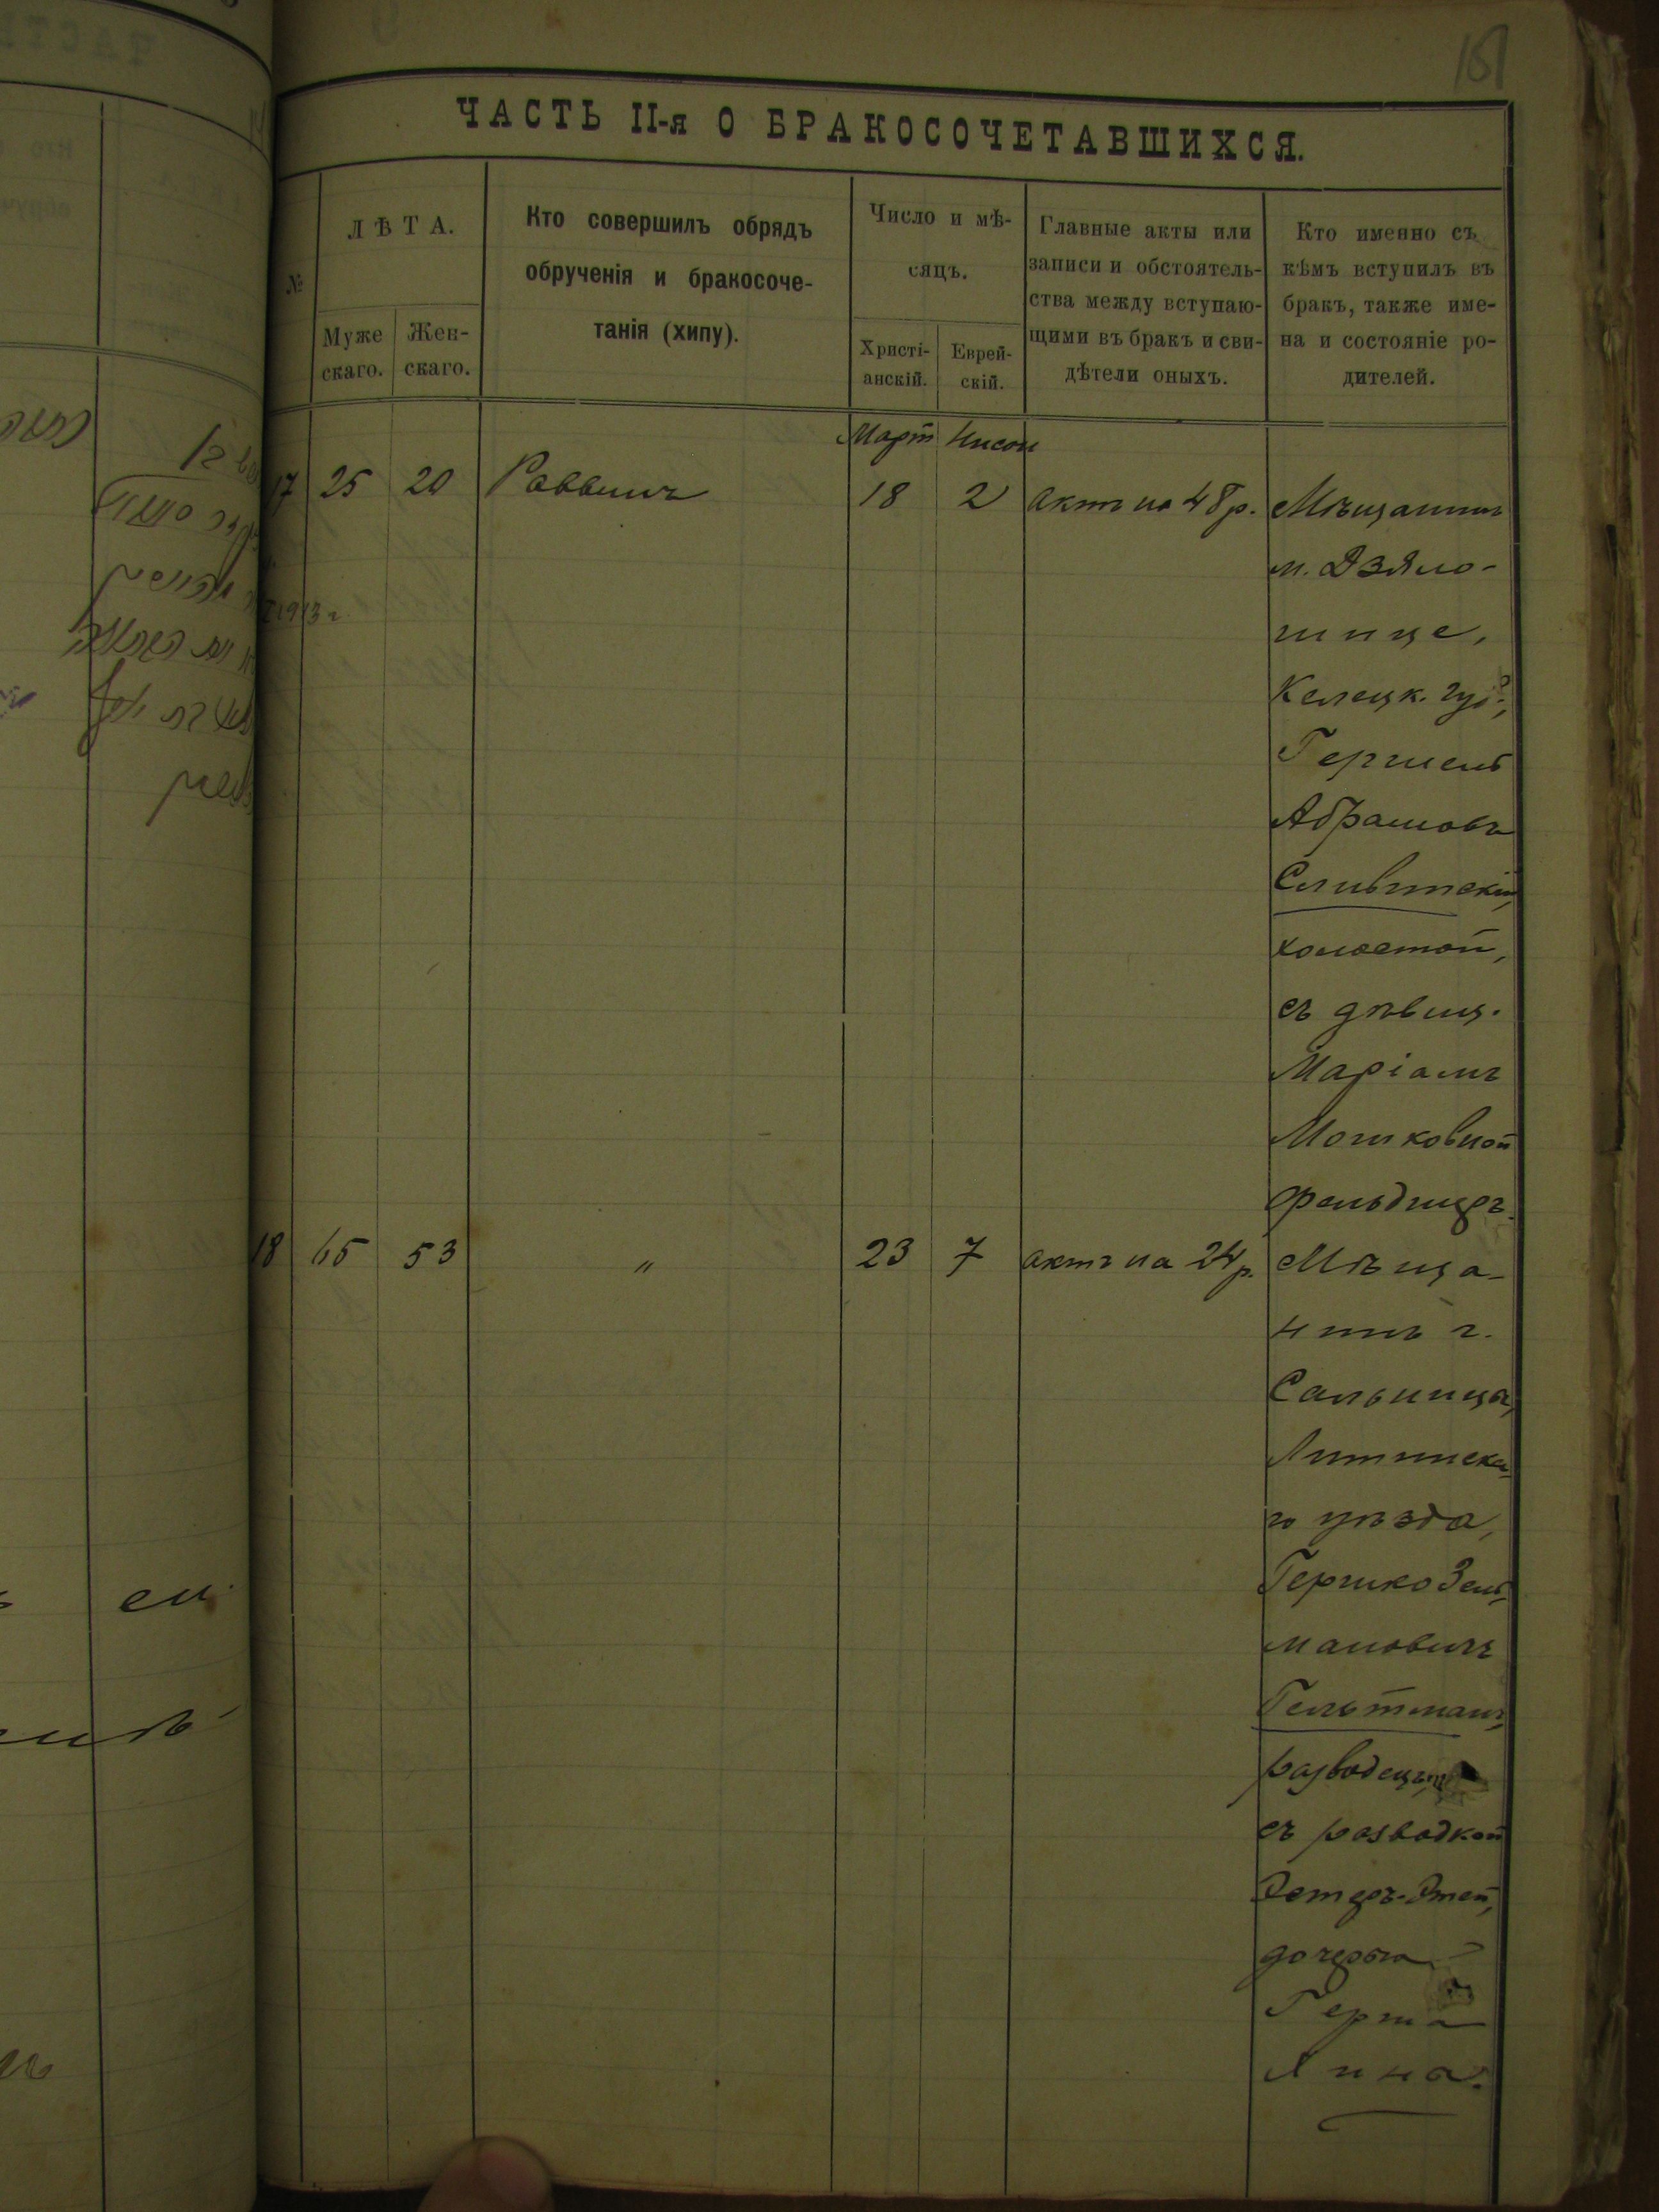 181
ЧАСТЬ II-я О БРАКОСОЧЕТАВШИХСЯ.
№
ЛѢТА.
Муже
скаго.
Жен-
скаго.
Кто совершилъ обрядъ
обрученія и бракосоче-
танія (хипу).
Число и мѣ-
сяцъ.
Христі-
анскій.
Еврей-
скій.
Главные акты или
записи и обстоятель-
ства между вступаю-
щими въ бракъ и сви-
дѣтели оныхъ.
Кто именно съ
кѣмъ вступилъ въ
бракъ, также име-
на и состояніе ро-
дителей.
Март Нисон
17 25 20 Раввинъ 18 2 актъ на 48 р. Мѣщанинъ
м. Дзяло-
шице,
Келецк. губ.,
Гершенъ
Абрамовъ
холостой,
съ дѣвиц.
Маріамъ
Мошковной
18 65 53 " 23 7 актъ на 24 р. Мѣща-
нинъ г.
Сальница,
Литинска-
го уѣзда,
Гершко Зель-
мановичъ
Гельтманъ,
разведецъ
съ разводкой
Эстеръ-Этей,
дочерью
Герша
Лина.